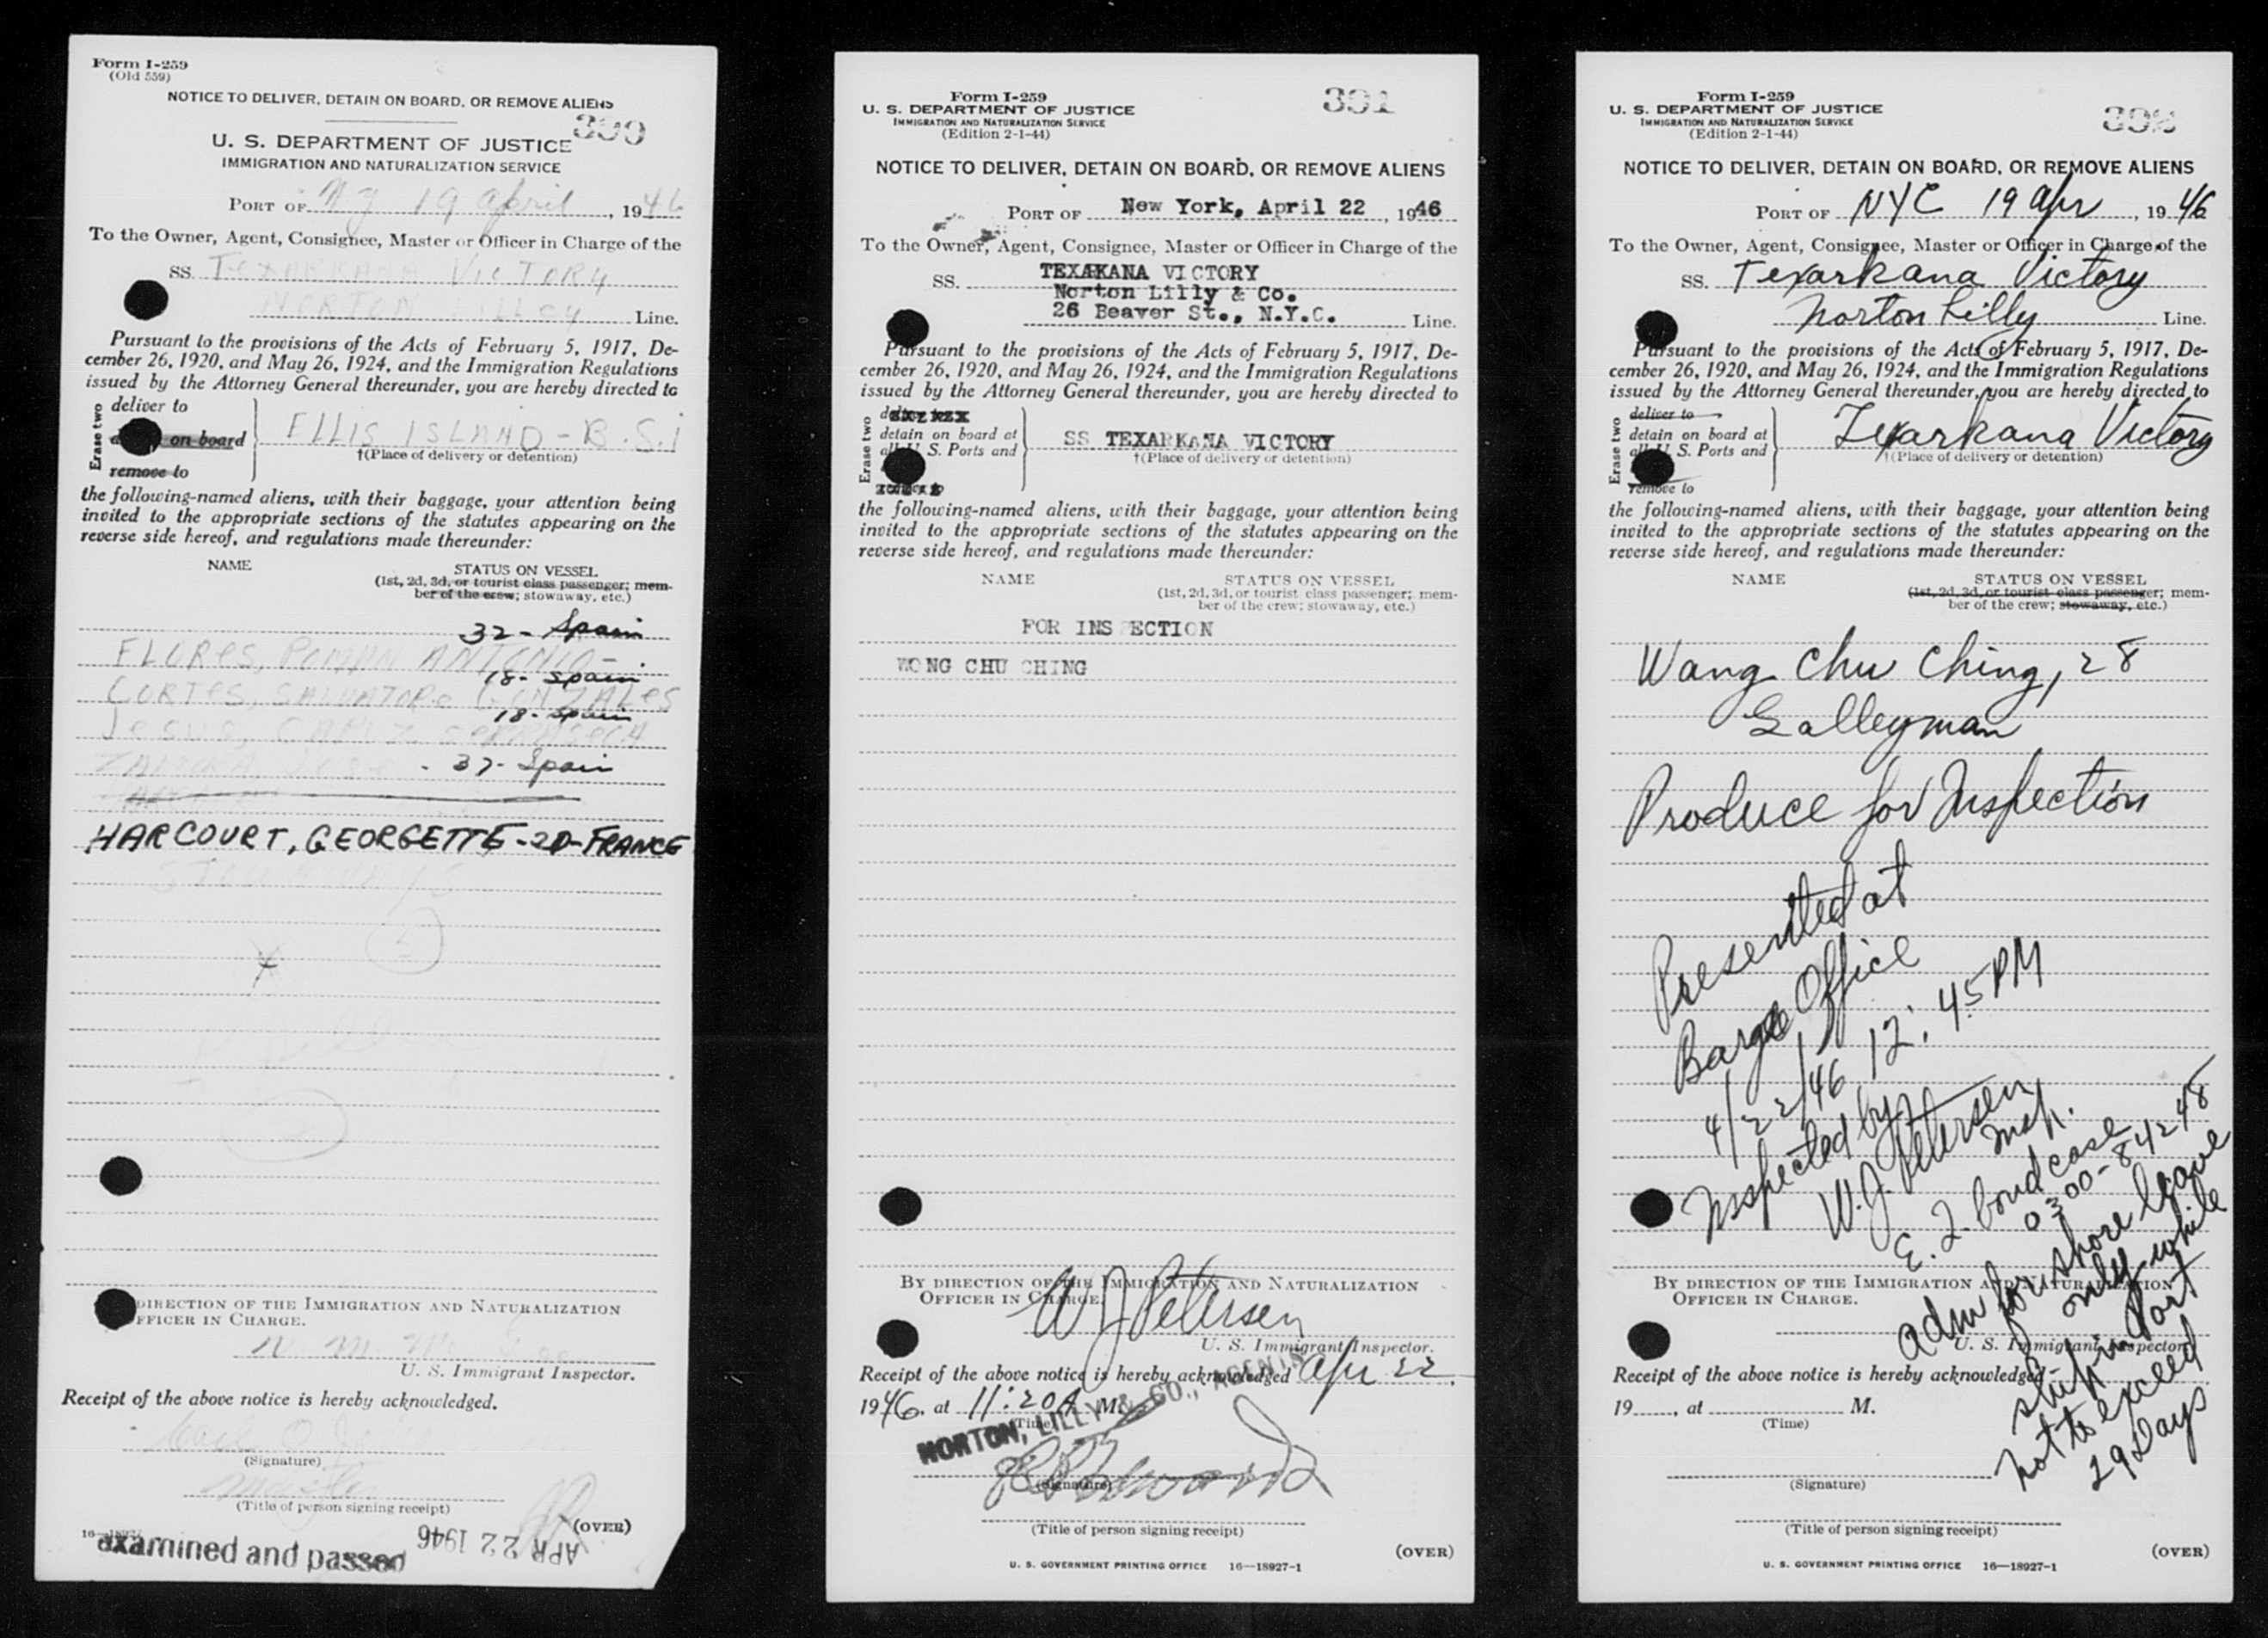 Form I-259
(Old 559)
NOTICE TO DELIVER, DETAIN ON BOARD, OR REMOVE ALIENS
390
U. S. DEPARTMENT OF JUSTICE
IMMIGRATION AND NATURALIZATION SERVICE
PORT OF NY 19 April, 1946
To the Owner, Agent, Consignee, Master or Officer in Charge of the
SS. TEXARKANA VICTORY
NORTON LILLEY Line.
Pursuant to the provisions of the Acts of February 5, 1917, De-
cember 26, 1920, and May 26, 1924, and the Immigration Regulations
issued by the Attorney General thereunder, you are hereby directed to
Erase two
deliver to
on board
remove to
ELLIS ISLAND - B.S.I
†(Place of delivery or detention)
the following-named aliens, with their baggage, your attention being
invited to the appropriate sections of the statutes appearing on the
reverse side hereof, and regulations made thereunder:
NAME
STATUS ON VESSEL
(1st, 2d, 3d, or tourist class passenger; mem-
ber of the crew; stowaway, etc.)
32 - Spain
FLORES, ROMAN ANTONIO -
18 - Spain
CORTES, SALVATORE GONZALES
18 - Spain
JESUS,
37 - Spain
HARCOURT, GEORGETTE - 20 - FRANCE
STOWAWAYS
DIRECTION OF THE IMMIGRATION AND NATURALIZATION
OFFICER IN CHARGE.
U. S. Immigrant Inspector.
Receipt of the above notice is hereby acknowledged.
(Signature)
Master
(Title of person signing receipt)
(OVER)
examined and passed
APR 22 1946
Form I-259
U. S. DEPARTMENT OF JUSTICE
IMMIGRATION AND NATURALIZATION SERVICE
(Edition 2-1-44)
391
NOTICE TO DELIVER, DETAIN ON BOARD, OR REMOVE ALIENS
PORT OF New York, April 22, 1946
To the Owner, Agent, Consignee, Master or Officer in Charge of the
SS. TEXAKANA VICTORY
Norton Lilly & Co.
26 Beaver St., N.Y.C. Line.
Pursuant to the provisions of the Acts of February 5, 1917, De-
cember 26, 1920, and May 26, 1924, and the Immigration Regulations
issued by the Attorney General thereunder, you are hereby directed to
Erase two
detain on board at
all U. S. Ports and
SS TEXARKANA VICTORY
†(Place of delivery or detention)
the following-named aliens, with their baggage, your attention being
invited to the appropriate sections of the statutes appearing on the
reverse side hereof, and regulations made thereunder:
NAME
STATUS ON VESSEL
(1st, 2d, 3d, or tourist class passenger; mem-
ber of the crew; stowaway, etc.)
FOR INSPECTION
WONG CHU CHING
BY DIRECTION OF THE IMMIGRATION AND NATURALIZATION
OFFICER IN CHARGE.
W J Petersen
U. S. Immigrant Inspector.
Receipt of the above notice is hereby acknowledged Apr 22,
1946, at 11:20 A M.
(Time)
NORTON, LILLY & CO., AGENTS
(Signature)
(Title of person signing receipt)
(OVER)
U. S. GOVERNMENT PRINTING OFFICE 16—18927-1
Form I-259
U. S. DEPARTMENT OF JUSTICE
IMMIGRATION AND NATURALIZATION SERVICE
(Edition 2-1-44)
392
NOTICE TO DELIVER, DETAIN ON BOARD, OR REMOVE ALIENS
PORT OF NYC 19 Apr, 1946
To the Owner, Agent, Consignee, Master or Officer in Charge of the
SS. Texarkana Victory
Norton Lilly Line.
Pursuant to the provisions of the Acts of February 5, 1917, De-
cember 26, 1920, and May 26, 1924, and the Immigration Regulations
issued by the Attorney General thereunder, you are hereby directed to
Erase two
deliver to
detain on board at
all U. S. Ports and
remove to
Texarkana Victory
†(Place of delivery or detention)
the following-named aliens, with their baggage, your attention being
invited to the appropriate sections of the statutes appearing on the
reverse side hereof, and regulations made thereunder:
NAME
STATUS ON VESSEL
(1st, 2d, 3d, or tourist class passenger; mem-
ber of the crew; stowaway, etc.)
Wang Chu Ching, 28
Galleyman
Produce for Inspection
Presented at
Barge Office
4/22/46 12:45 PM
Inspected by
W.J. Petersen
Insp.
E. I. bond case
0300-84248
adm for shore leave
only while
ship in Port
not to exceed
29 Days
BY DIRECTION OF THE IMMIGRATION AND NATURALIZATION
OFFICER IN CHARGE.
U. S. Immigrant Inspector
Receipt of the above notice is hereby acknowledged
19____, at ____ M.
(Time)
(Signature)
(Title of person signing receipt)
(OVER)
U. S. GOVERNMENT PRINTING OFFICE 16—18927-1